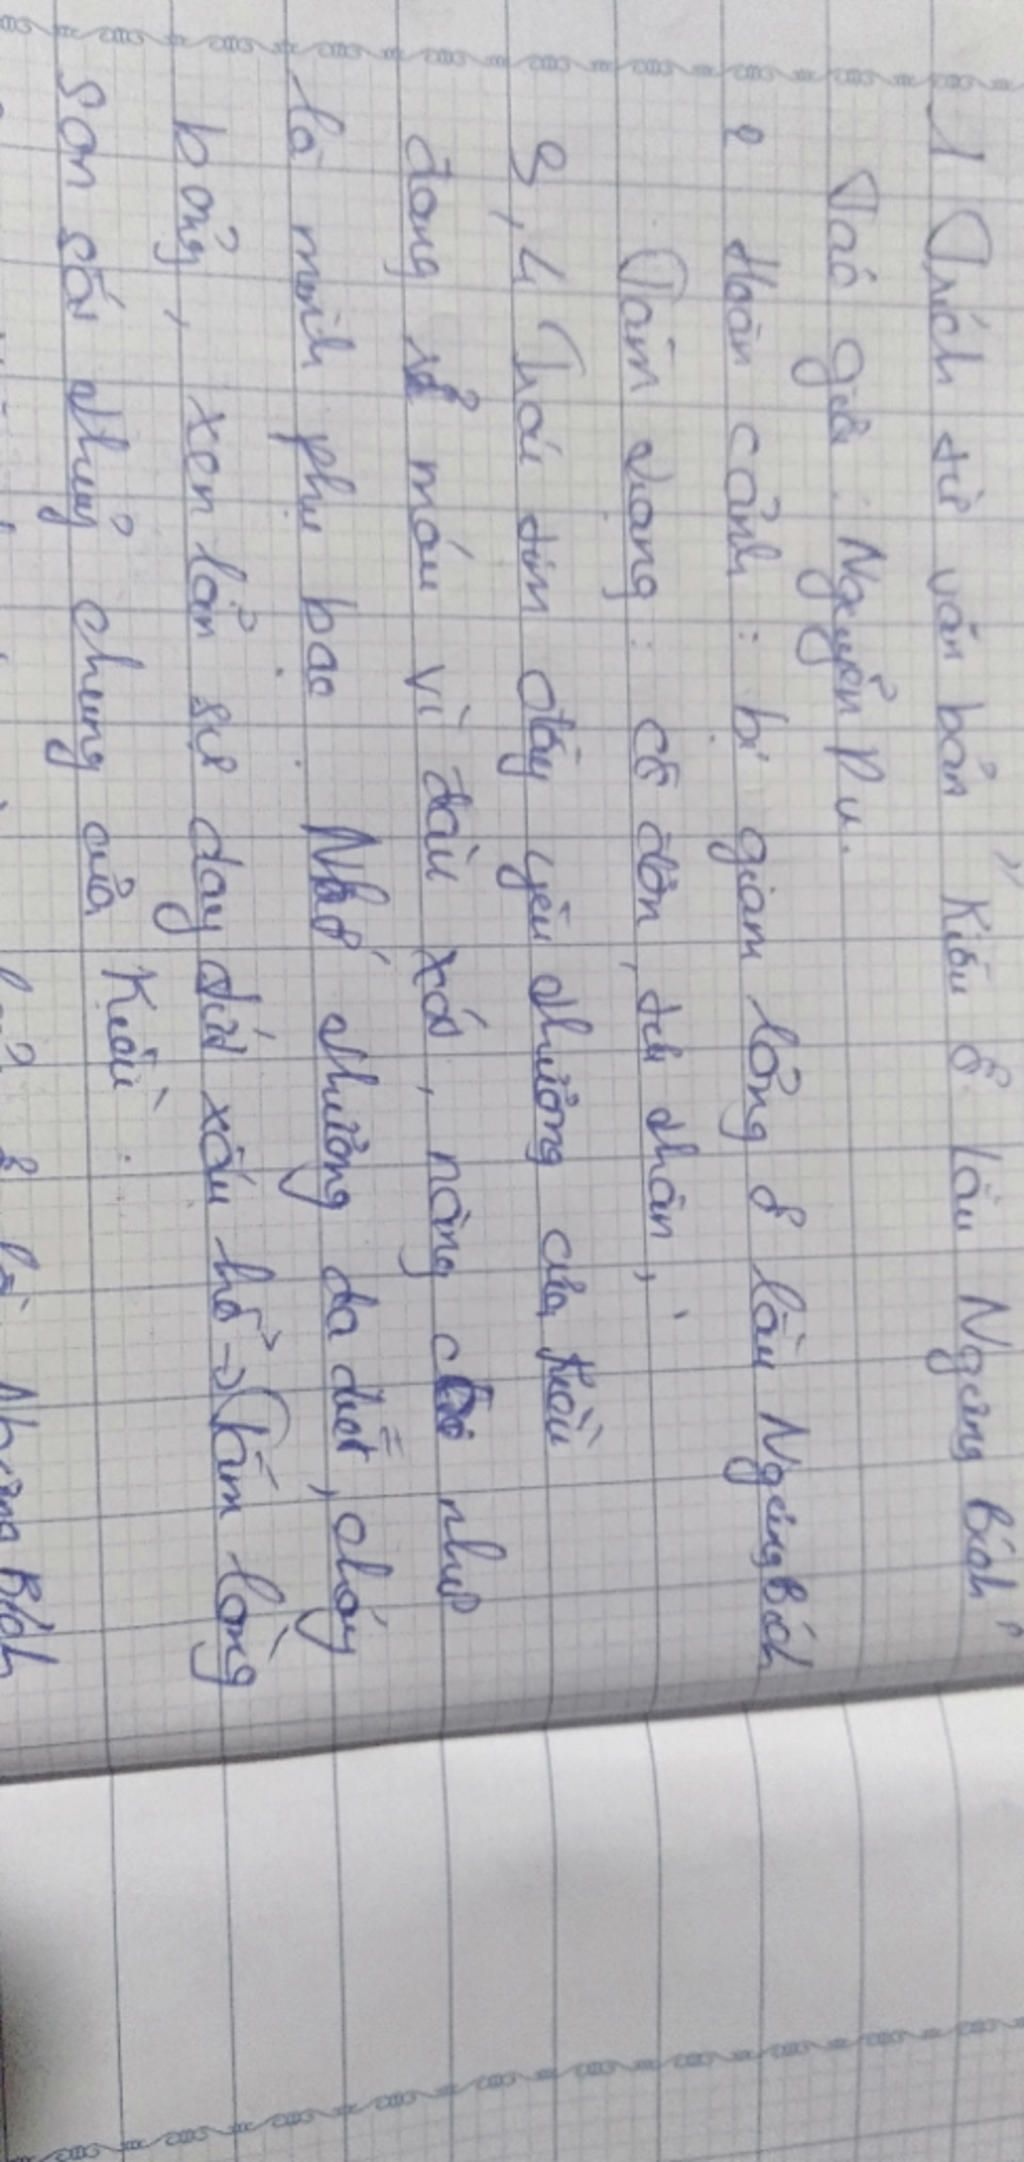 1 Trích từ văn bản "Kiều ở lầu Ngưng Bích"
Tác giả : Nguyễn Du.
2 Hoàn cảnh : bị giam lỏng ở lầu Ngưng Bích
Tâm trạng : cô đơn, tủi thân,
3, 4 Trái tim đầy yêu thương của Kiều
đang rỉ máu vì đau xót, nàng như
là mình phụ bạc. Nhớ thương da diết, cháy
bỏng, xen lẫn sự day dứt xấu hổ → Tấm lòng
son sắt thuỷ chung của Kiều.